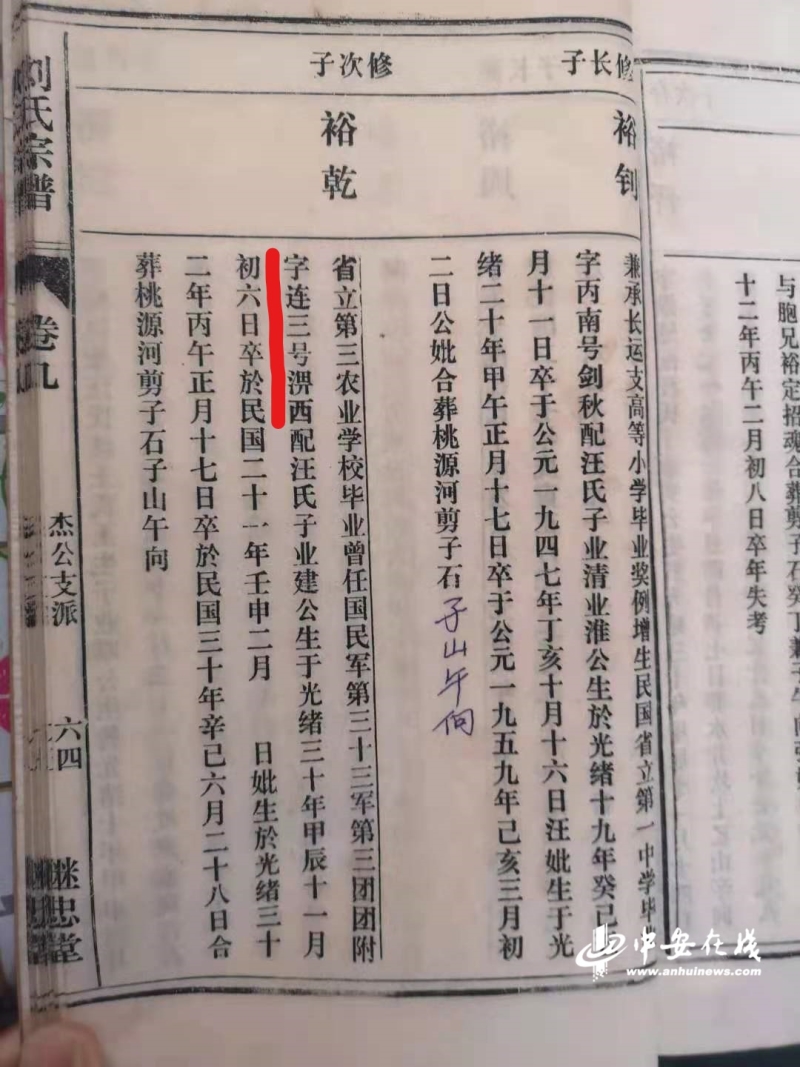 与胞兄裕定招魂合葬剪子石癸丁兼子午向张
十二年丙午二月初八日卒年失考
修长子
裕钊
兼承长运支高等小学毕业奖例增生民国省立第一中学毕
字丙南号剑秋配汪氏子业清业淮公生於光绪十九年癸已
月十一日卒于公元一九四七年丁亥十月十六日汪妣生于光
绪二十年甲午正月十七日卒于公元一九五九年己亥三月初
二日公妣合葬桃源河剪子石子山午向
修次子
裕乾
省立第三农业学校毕业曾任国民军第三十三军第三团团附
字连三号淠西配汪氏子业建公生于光绪三十年甲辰十一月
初六日卒於民国二十一年壬申二月 日妣生於光绪三十
二年丙午正月十七日卒於民国三十年辛己六月二十八日合
葬桃源河剪子石子山午向
刘氏宗谱
卷九
杰公支派
六四
继忠堂
中安在线
www.anhuinews.com